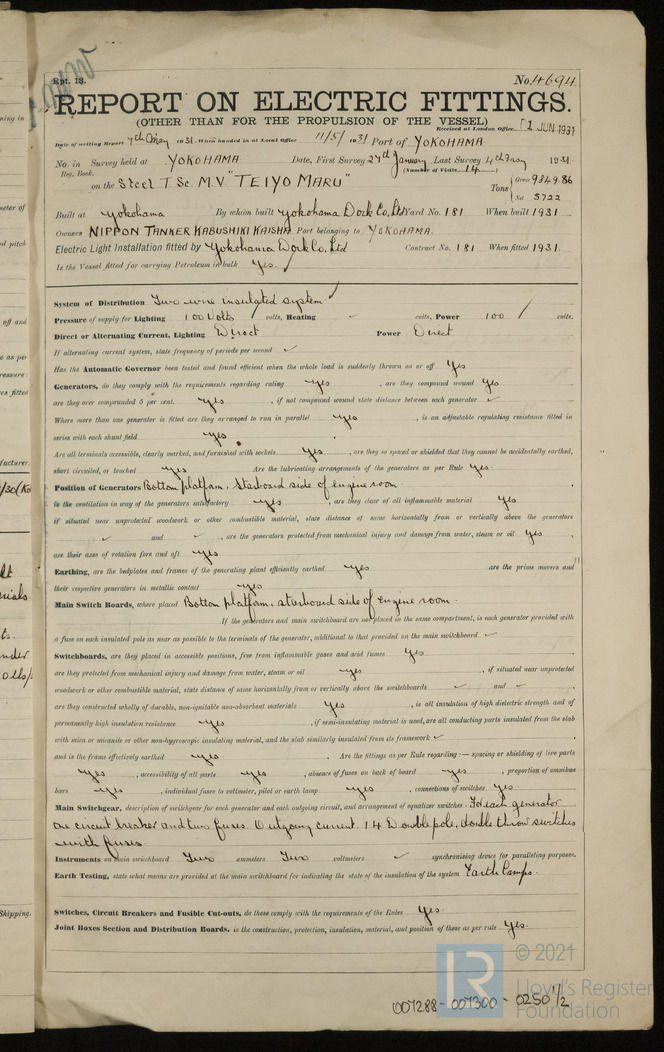 Rpt. 13.
No. 4694
REPORT ON ELECTRIC FITTINGS.
(OTHER THAN FOR THE PROPULSION OF THE VESSEL)
Received at London Office 1 JUN 1931
Date of writing Report 7th May 1931. When handed in at Local Office 11/5/1931 Port of YOKOHAMA
No. in Survey held at YOKOHAMA Date, First Survey 27th January Last Survey 4th May 1931
Reg. Book. (Number of Visits 14)
on the Steel T. Sc. M.V. "TEIYO MARU" Tons { Gross 9849.86
Net 5722
Built at Yokohama By whom built Yokohama Dock Co. Ltd Yard No. 181 When built 1931
Owners NIPPON TANKER KABUSHIKI KAISHA Port belonging to YOKOHAMA
Electric Light Installation fitted by Yokohama Dock Co. Ltd Contract No. 181 When fitted 1931.
Is the Vessel fitted for carrying Petroleum in bulk Yes.
System of Distribution Two wire insulated system
Pressure of supply for Lighting 100 Volts volts, Heating volts, Power 100 volts.
Direct or Alternating Current, Lighting Direct Power Direct
If alternating current system, state frequency of periods per second
Has the Automatic Governor been tested and found efficient when the whole load is suddenly thrown on or off Yes
Generators, do they comply with the requirements regarding rating yes, are they compound wound yes
are they over compounded 5 per cent. yes, if not compound wound state distance between each generator
Where more than one generator is fitted are they arranged to run in parallel yes, is an adjustable regulating resistance fitted in
series with each shunt field yes
Are all terminals accessible, clearly marked, and furnished with sockets yes, are they so spaced or shielded that they cannot be accidentally earthed,
short circuited, or touched yes Are the lubricating arrangements of the generators as per Rule yes.
Position of Generators Bottom platform, Starboard side of engine room
is the ventilation in way of the generators satisfactory yes, are they clear of all inflammable material yes
if situated near unprotected woodwork or other combustible material, state distance of same horizontally from or vertically above the generators
and , are the generators protected from mechanical injury and damage from water, steam or oil yes,
are their axes of rotation fore and aft yes
Earthing, are the bedplates and frames of the generating plant efficiently earthed yes are the prime movers and
their respective generators in metallic contact yes
Main Switch Boards, where placed Bottom platform, starboard side of engine room.
If the generators and main switchboard are not placed in the same compartment, is each generator provided with
a fuse on each insulated pole as near as possible to the terminals of the generator, additional to that provided on the main switchboard
Switchboards, are they placed in accessible positions, free from inflammable gases and acid fumes yes,
are they protected from mechanical injury and damage from water, steam or oil yes, if situated near unprotected
woodwork or other combustible material, state distance of same horizontally from or vertically above the switchboards and
are they constructed wholly of durable, non-ignitable non-absorbent materials yes, is all insulation of high dielectric strength and of
permanently high insulation resistance yes, if semi-insulating material is used, are all conducting parts insulated from the slab
with mica or micanite or other non-hygroscopic insulating material, and the slab similarly insulated from its framework
and is the frame effectively earthed yes. Are the fittings as per Rule regarding:— spacing or shielding of live parts
yes, accessibility of all parts yes, absence of fuses on back of board yes, proportion of omnibus
bars yes, individual fuses to voltmeter, pilot or earth lamp yes, connections of switches yes.
Main Switchgear, description of switchgear for each generator and each outgoing circuit, and arrangement of equalizer switches. To each generator
one circuit breaker and two fuses. Outgoing current. 14 Double pole, double throw switches
with fuses.
Instruments on main switchboard Two ammeters Two voltmeters synchronising device for paralleling purposes.
Earth Testing, state what means are provided at the main switchboard for indicating the state of the insulation of the system Earth Lamps.
Switches, Circuit Breakers and Fusible Cut-outs, do these comply with the requirements of the Rules Yes.
Joint Boxes Section and Distribution Boards, is the construction, protection, insulation, material, and position of these as per rule Yes.
© 2021
Lloyd's Register
Foundation
007288-007300-0250 1/2